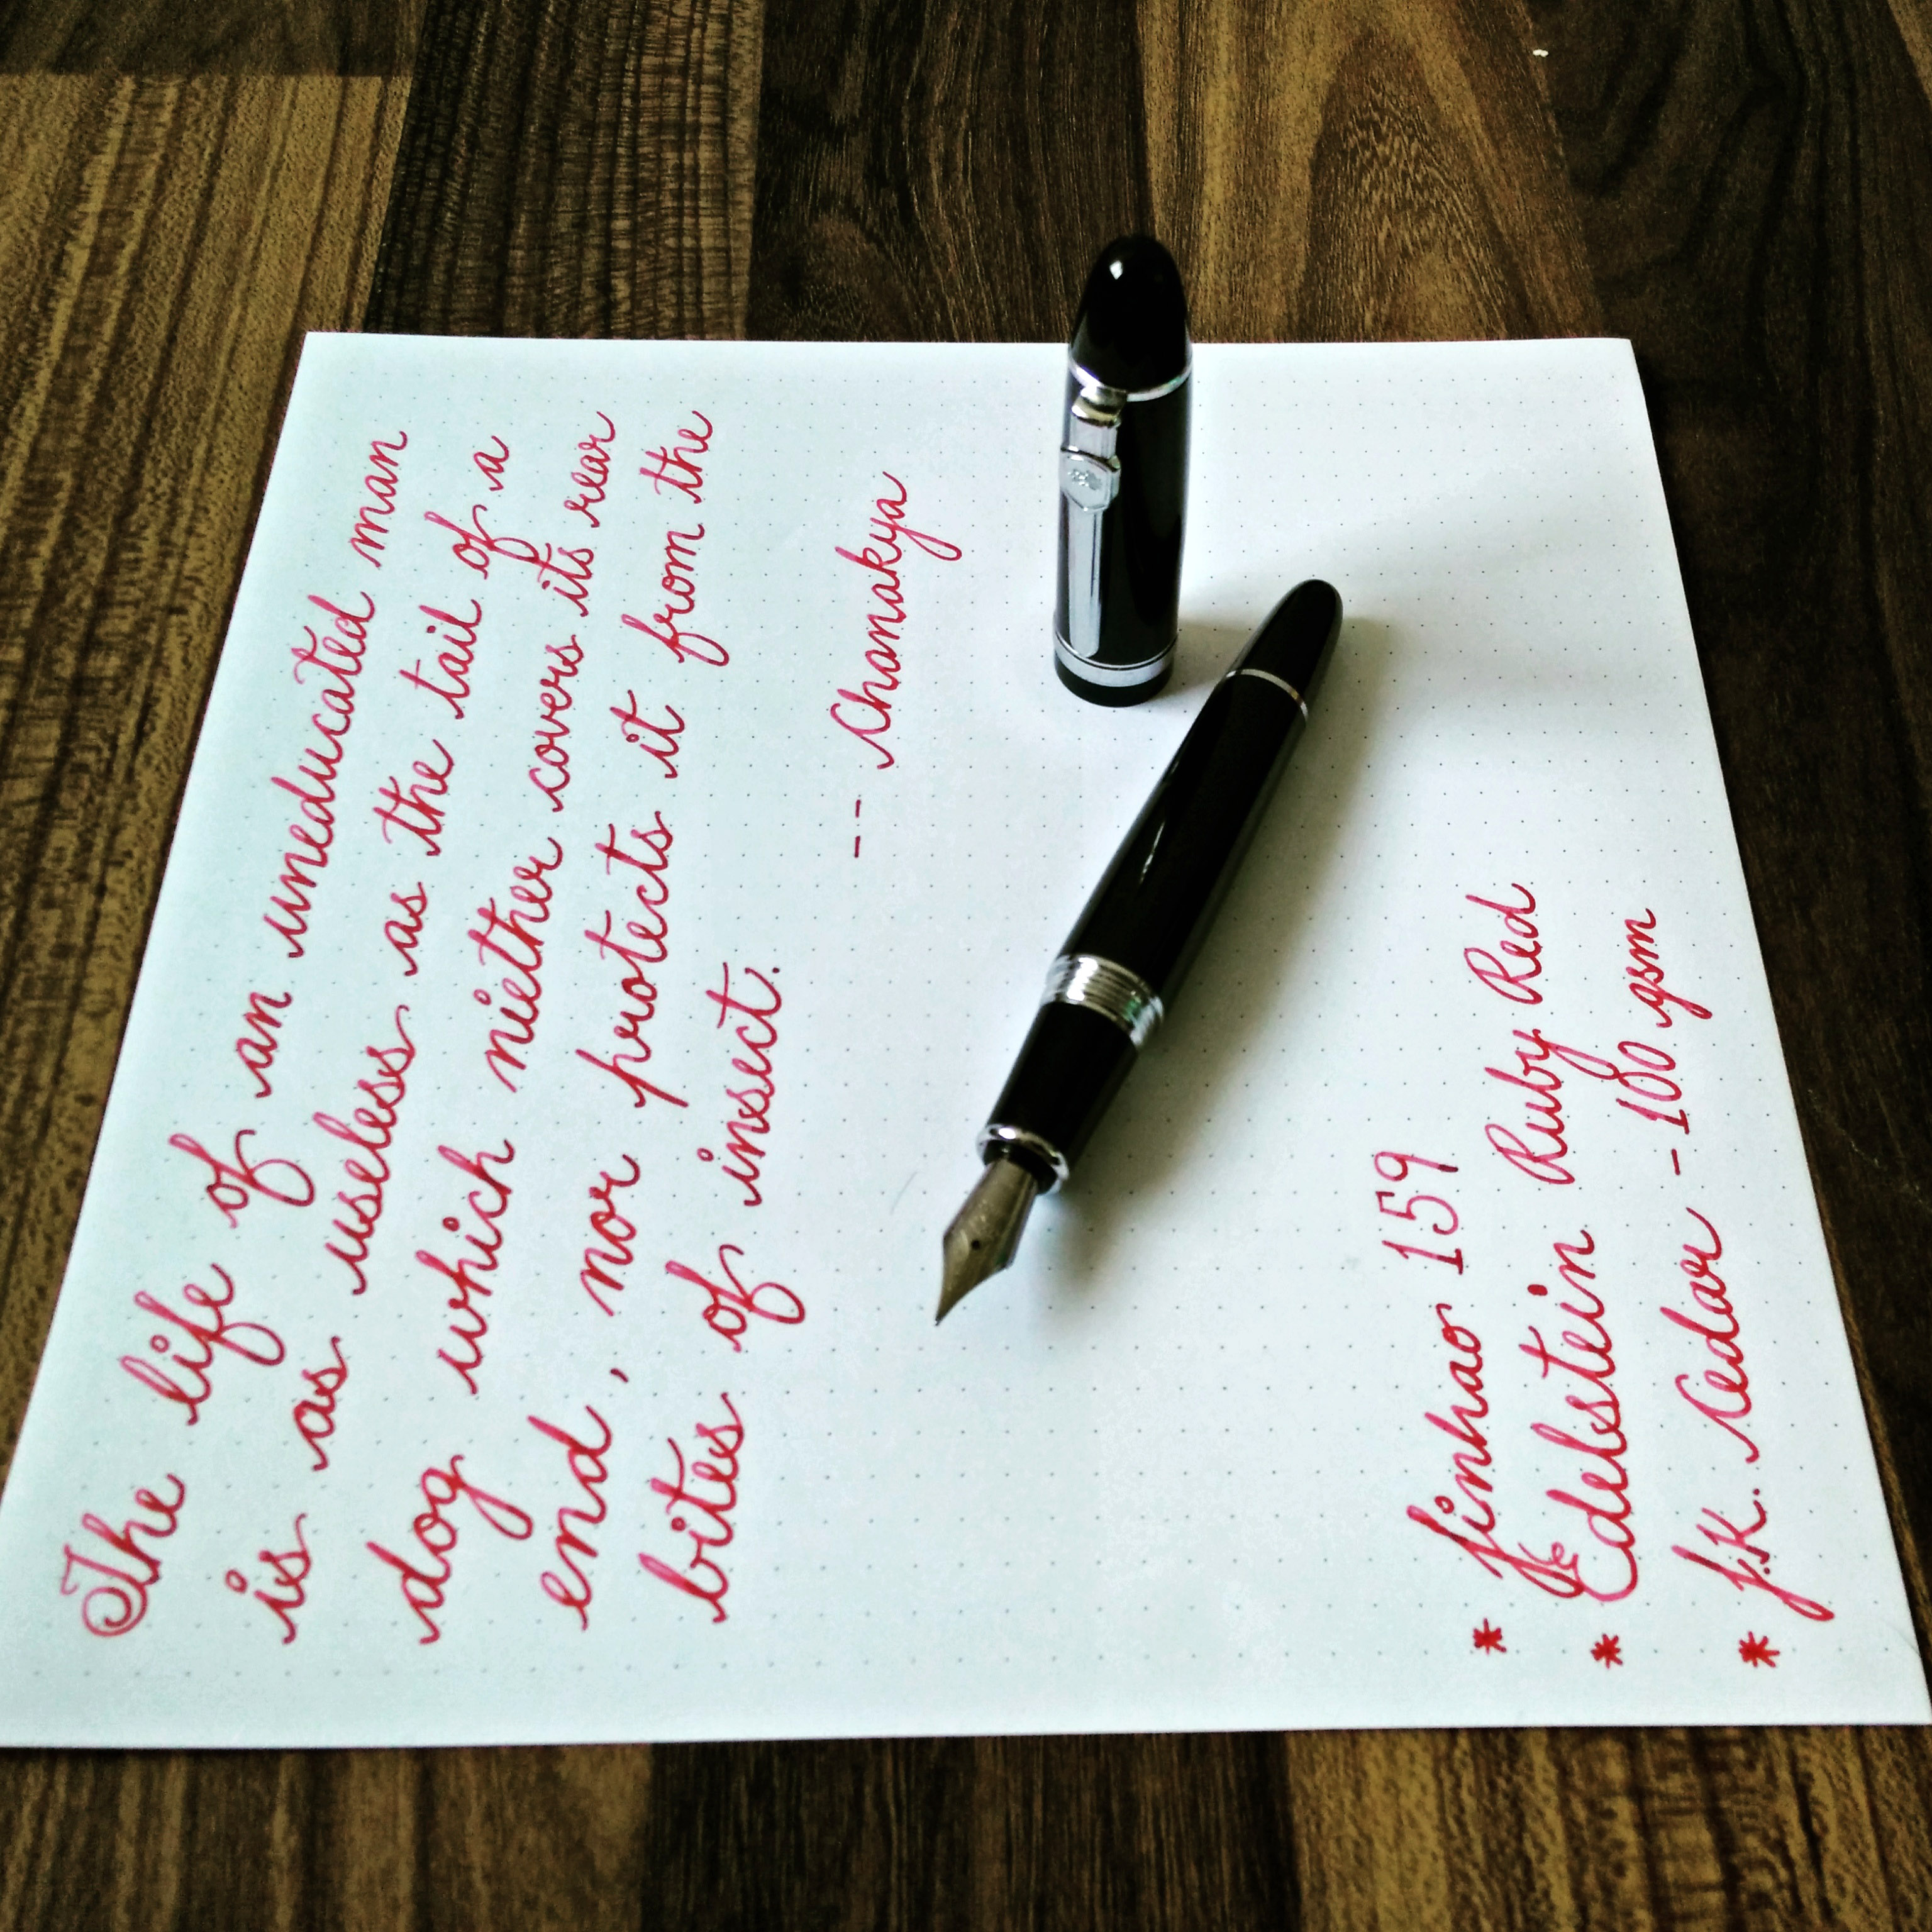 The life of an uneducated man
is as useless as the tail of a
dog which niether covers its rear
end, nor protects it from the
bites of insect.
-- Chanakya
* Jinhao 159
* Edelstein Ruby Red
* J.K. Cedar - 100 gsm